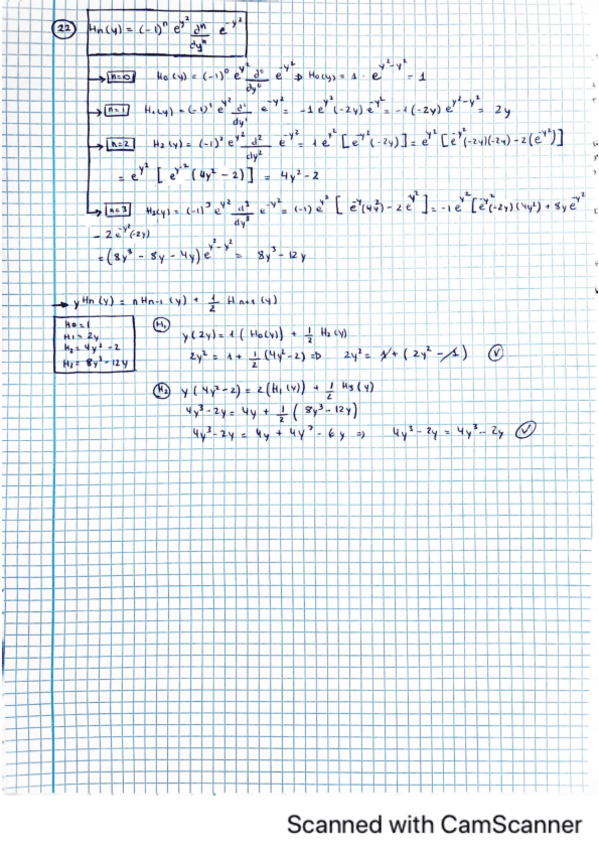 22 Hn(y) = (-1)^n e^{y²} d^n/dy^n e^{-y²}
n=0 H0(y) = (-1)^0 e^{y²} d^0/dy^0 e^{-y²} ⇒ H0(y) = 1 · e^{y²-y²} = 1
n=1 H1(y) = (-1)^1 e^{y²} d^1/dy^1 e^{-y²} = -1 e^{y²} (-2y) e^{-y²} = -1(-2y) e^{y²-y²} = 2y
n=2 H2(y) = (-1)² e^{y²} d²/dy² e^{-y²} = 1 e^{y²} [e^{-y²}(-2y)] = e^{y²} [e^{-y²}(-2y)(-2y) - 2(e^{-y²})]
= e^{y²} [e^{-y²}(4y² - 2)] = 4y² - 2
n=3 H3(y) = (-1)³ e^{y²} d³/dy³ e^{-y²} = (-1) e^{y²} [e^{-y²}(4y²) - 2e^{-y²}] = -1 e^{y²} [e^{-y²}(-2y)(4y²) + 8y e^{-y²}
- 2 e^{-y²}(-2y)
= (8y³ - 8y - 4y) e^{y²-y²} = 8y³ - 12y
→ y Hn(y) = n Hn-1(y) + 1/2 Hn+1(y)
H0 = 1
H1 = 2y
H2 = 4y² - 2
H3 = 8y³ - 12y
H1 y(2y) = 1(H0(y)) + 1/2 H2(y)
2y² = 1 + 1/2 (4y² - 2) ⇒ 2y² = 1 + (2y² - 1) ✓
H2 y(4y² - 2) = 2(H1(y)) + 1/2 H3(y)
4y³ - 2y = 4y + 1/2 (8y³ - 12y)
4y³ - 2y = 4y + 4y³ - 6y ⇒ 4y³ - 2y = 4y³ - 2y ✓
Scanned with CamScanner